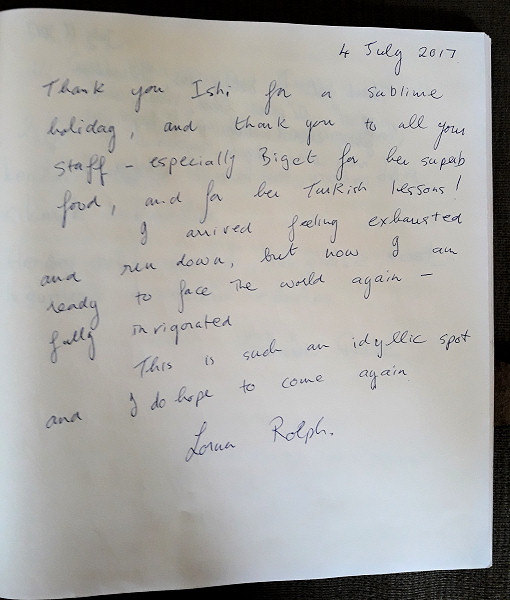 4 July 2017
Thank you Ishi for a sublime
holiday, and thank you to all your
staff – especially Biget for her superb
food, and for her Turkish lessons!
I arrived feeling exhausted
and run down, but now I am
ready to face the world again –
fully invigorated
This is such an idyllic spot
and I do hope to come again.
Lorna Rolph.